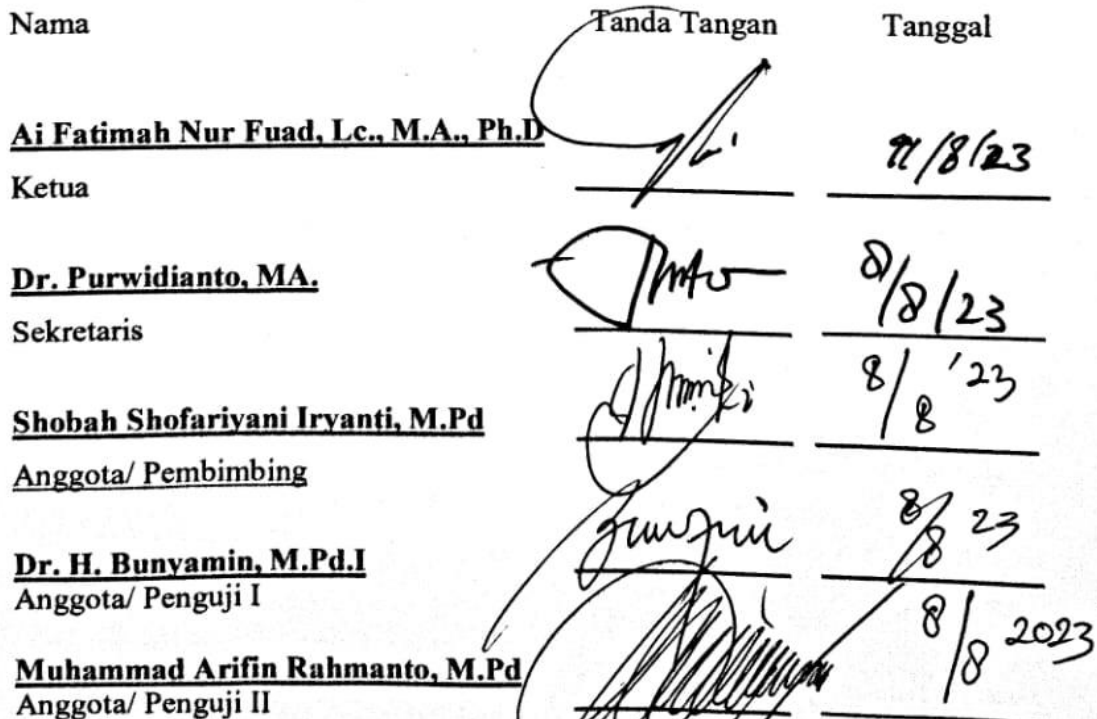 Nama Tanda Tangan Tanggal
Ai Fatimah Nur Fuad, Lc., M.A., Ph.D
/8/23
Ketua
Dr. Purwidianto, MA.
8/8/23
Sekretaris
8/8 '23
Shobah Shofariyani Iryanti, M.Pd
Anggota/ Pembimbing
8/8 23
Dr. H. Bunyamin, M.Pd.I
Anggota/ Penguji I
8/8 2023
Muhammad Arifin Rahmanto, M.Pd
Anggota/ Penguji II